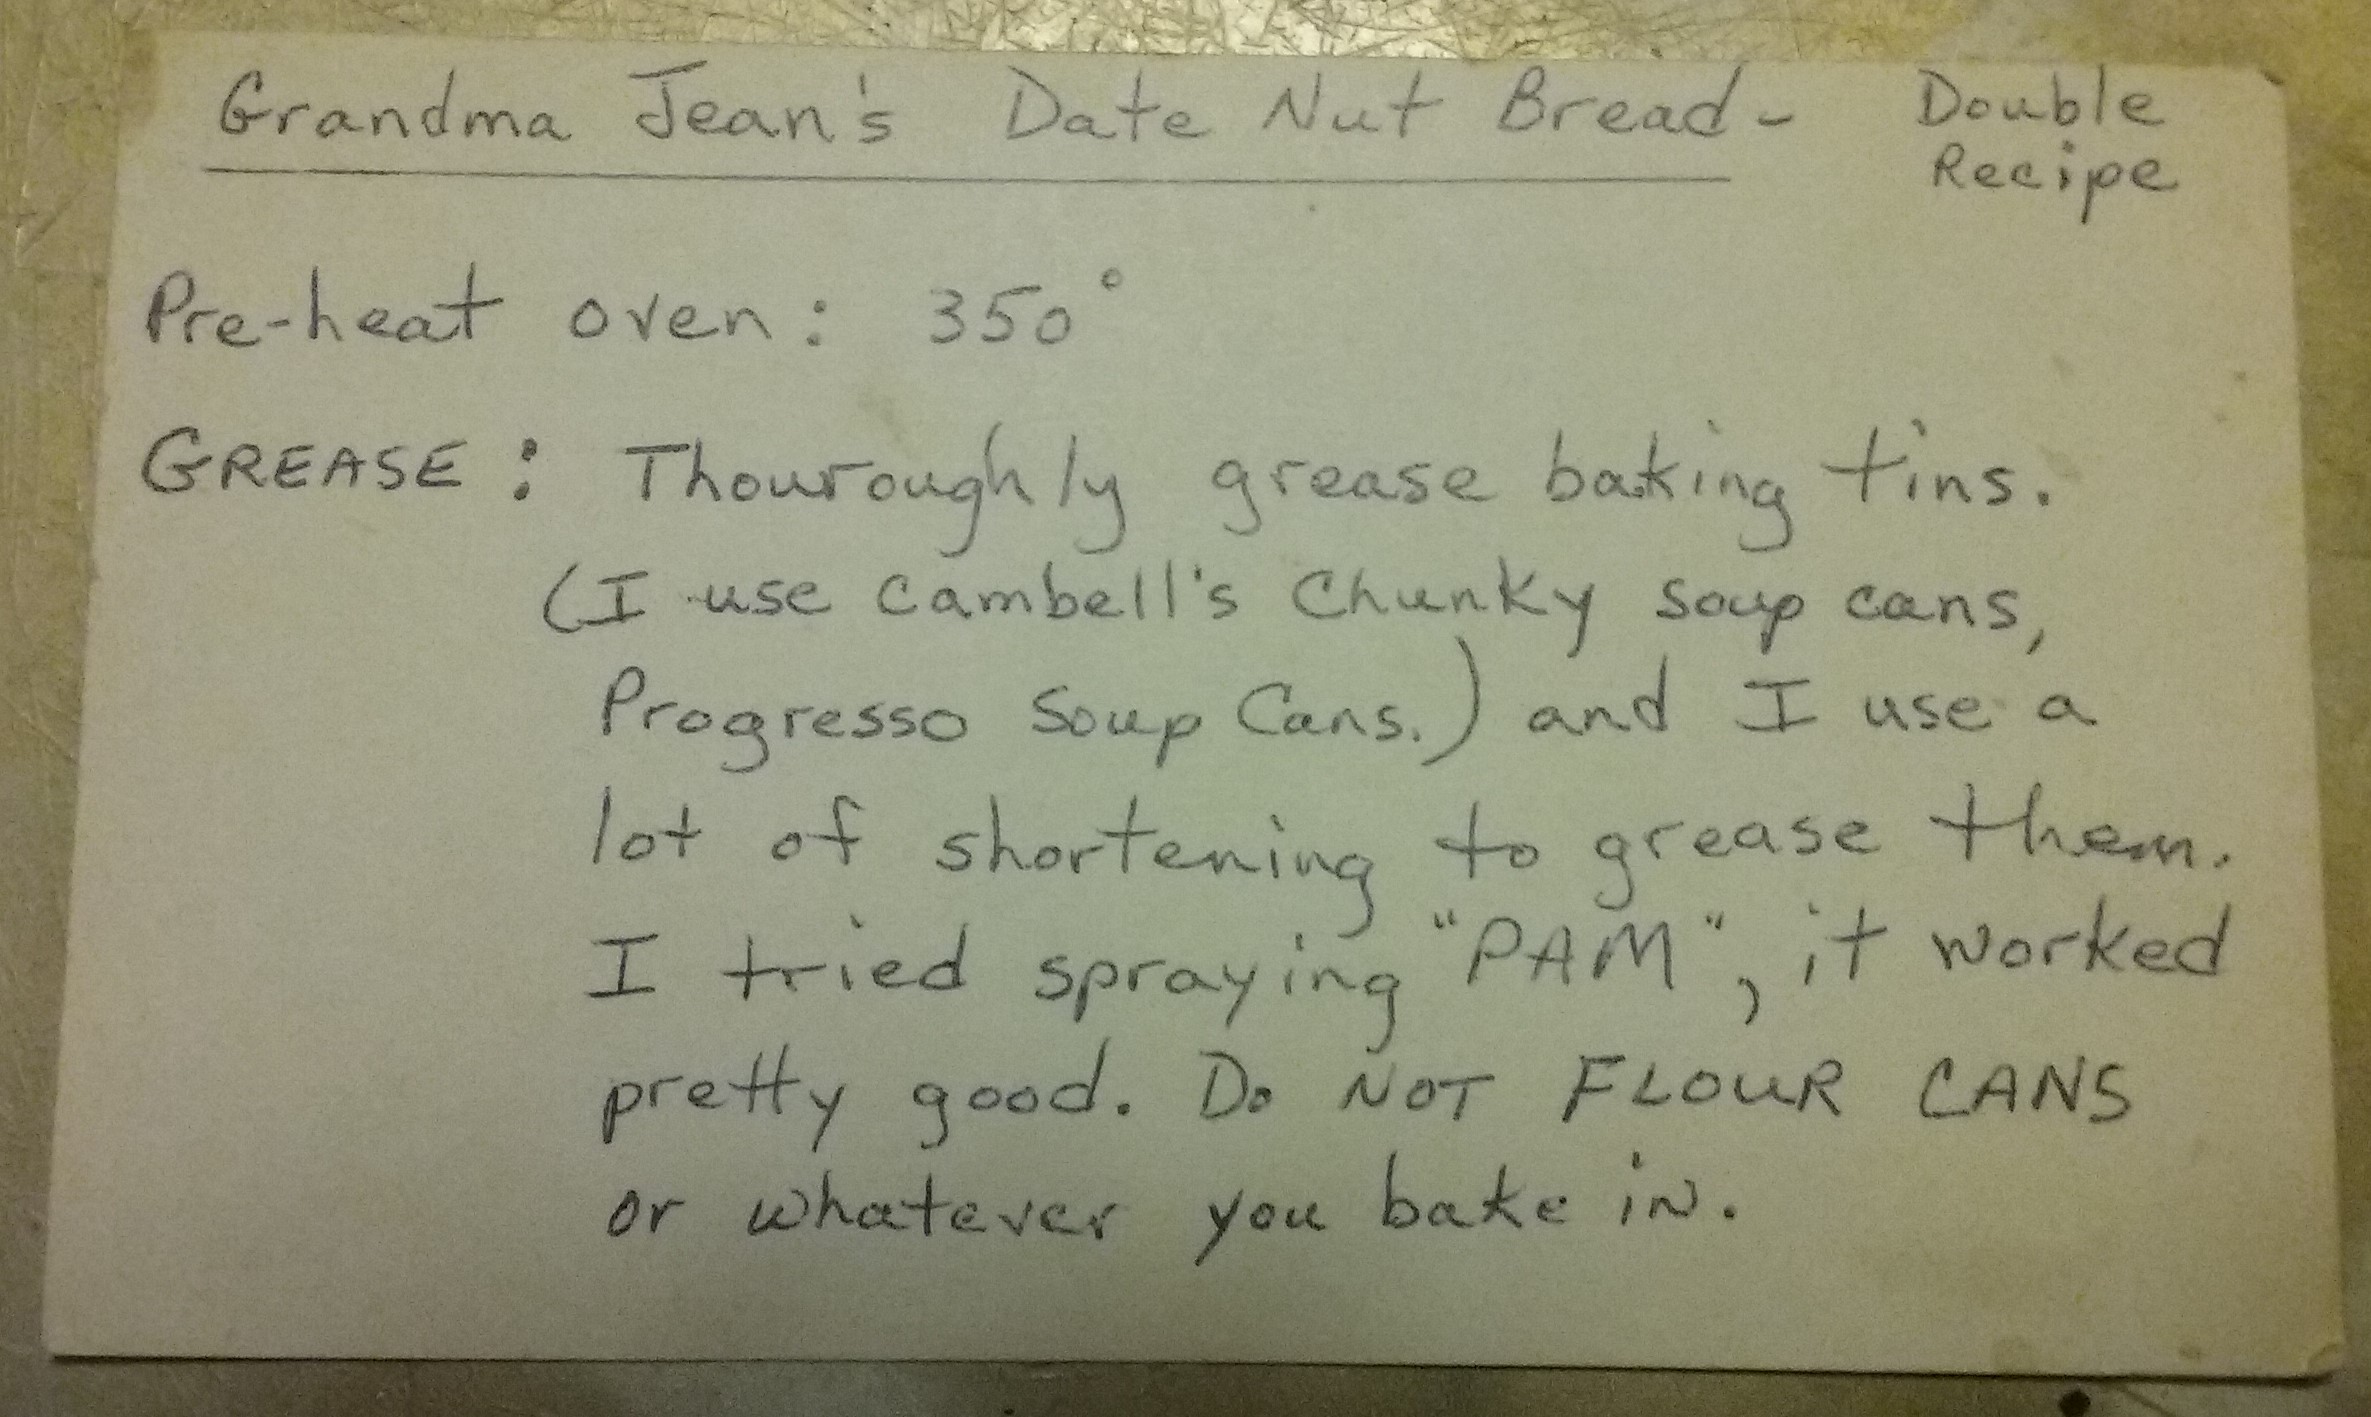 Grandma Jean's Date Nut Bread - Double
Recipe
Pre-heat oven: 350°
GREASE: Thouroughly grease baking tins.
(I use Cambell's Chunky soup cans,
Progresso Soup Cans.) and I use a
lot of shortening to grease them.
I tried spraying "PAM", it worked
pretty good. Do NOT FLOUR CANS
or whatever you bake in.